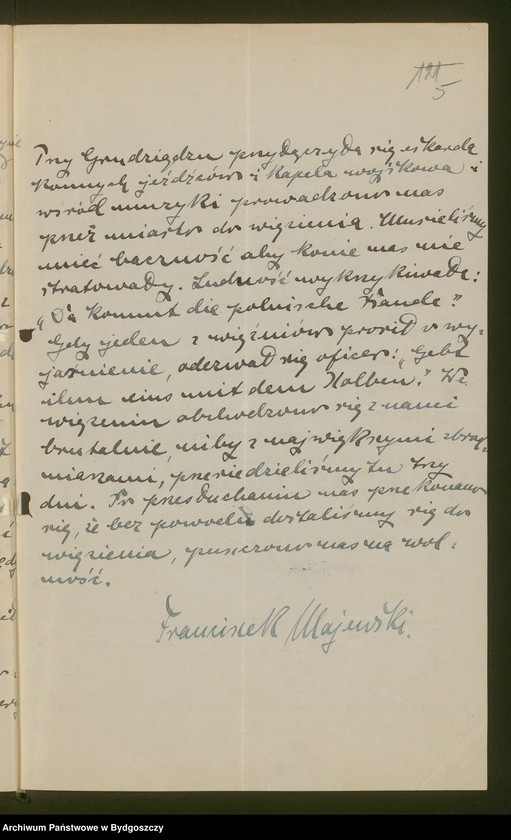 121
5
Przy Grudziądzu przyłączyła się eskorda
konnych jeźdźców i kapela wojskowa i
wśród muzyki prowadzono nas
przez miasto do więzienia. Musieliśmy
mieć baczność aby konie nas nie
stratowały. Ludność wykrzykiwała:
"Da kommt die polnische Bande".
Gdy jeden z więźniów prosił o wy-
jaśnienie, odezwał się oficer: "Gebt
ihm eins mit dem Kolben." We
więzieniu obchodzono się z nami
brutalnie, niby z największymi zbrod-
niarzami, przesiedzieliśmy tu trzy
dni. Po przesłuchaniu nas przekonano
się, że bez powodu dostaliśmy się do
więzienia, puszczono nas na wol-
ność.
Franciszek Majewski.
Archiwum Państwowe w Bydgoszczy